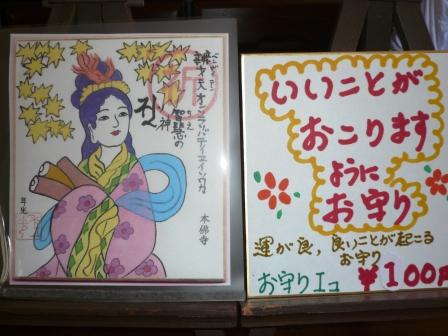 ベンザイテン
辨才天オンソラソバテイエイソワカ
智慧の
ちえ
神
本佛寺
いいことが
おこります
ように
お守り
運が良、良いことが起こる
お守り
お守り1コ ¥100円